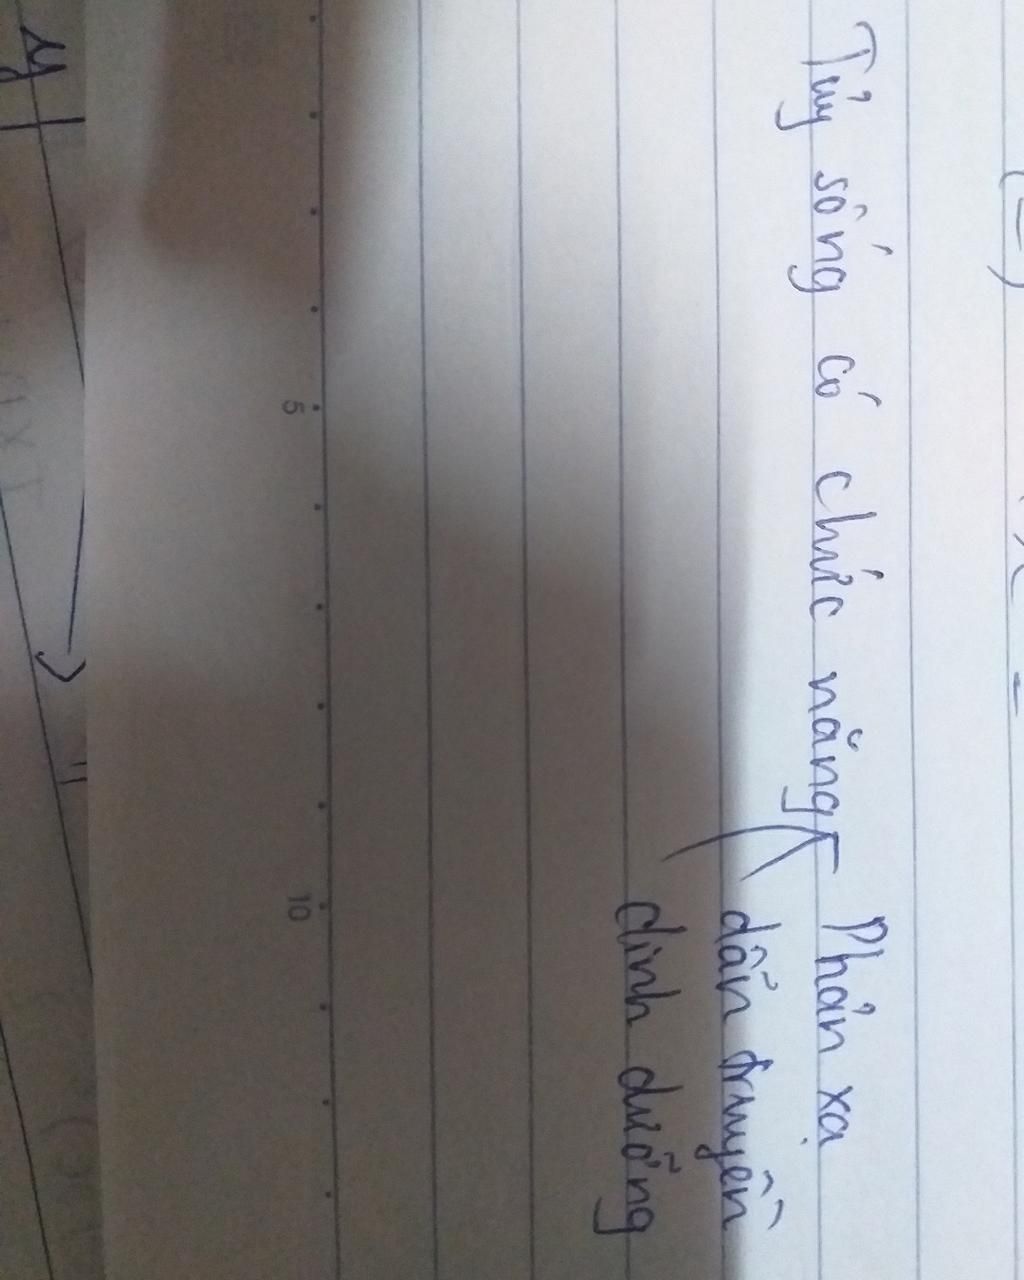 Tủy sống có chức năng Phản xạ
dẫn truyền
dinh dưỡng
5
10